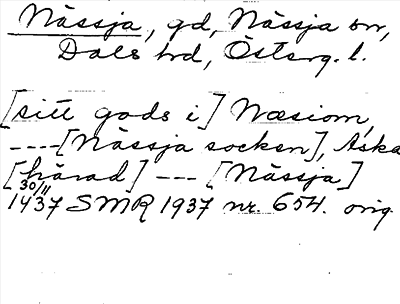 Nässja, gd, Nässja sn,
Dals hd, Österg. l.
[sitt gods i] Næsiom,
----[Nässja socken], Aska
[härad] --- [Nässja]
30/11
1437 SMR 1937 nr. 654. orig